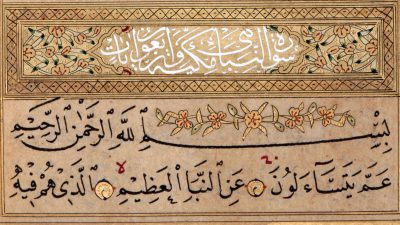 سورة النبا مكية وهى اربعون آيات
بِسْمِ اللهِ الرَّحْمٰنِ الرَّحِيمِ
عَمَّ يَتَسَاءَلُونَ ۝ عَنِ النَّبَاِ الْعَظِيمِ ۝ اَلَّذِى هُمْ فِيهِ